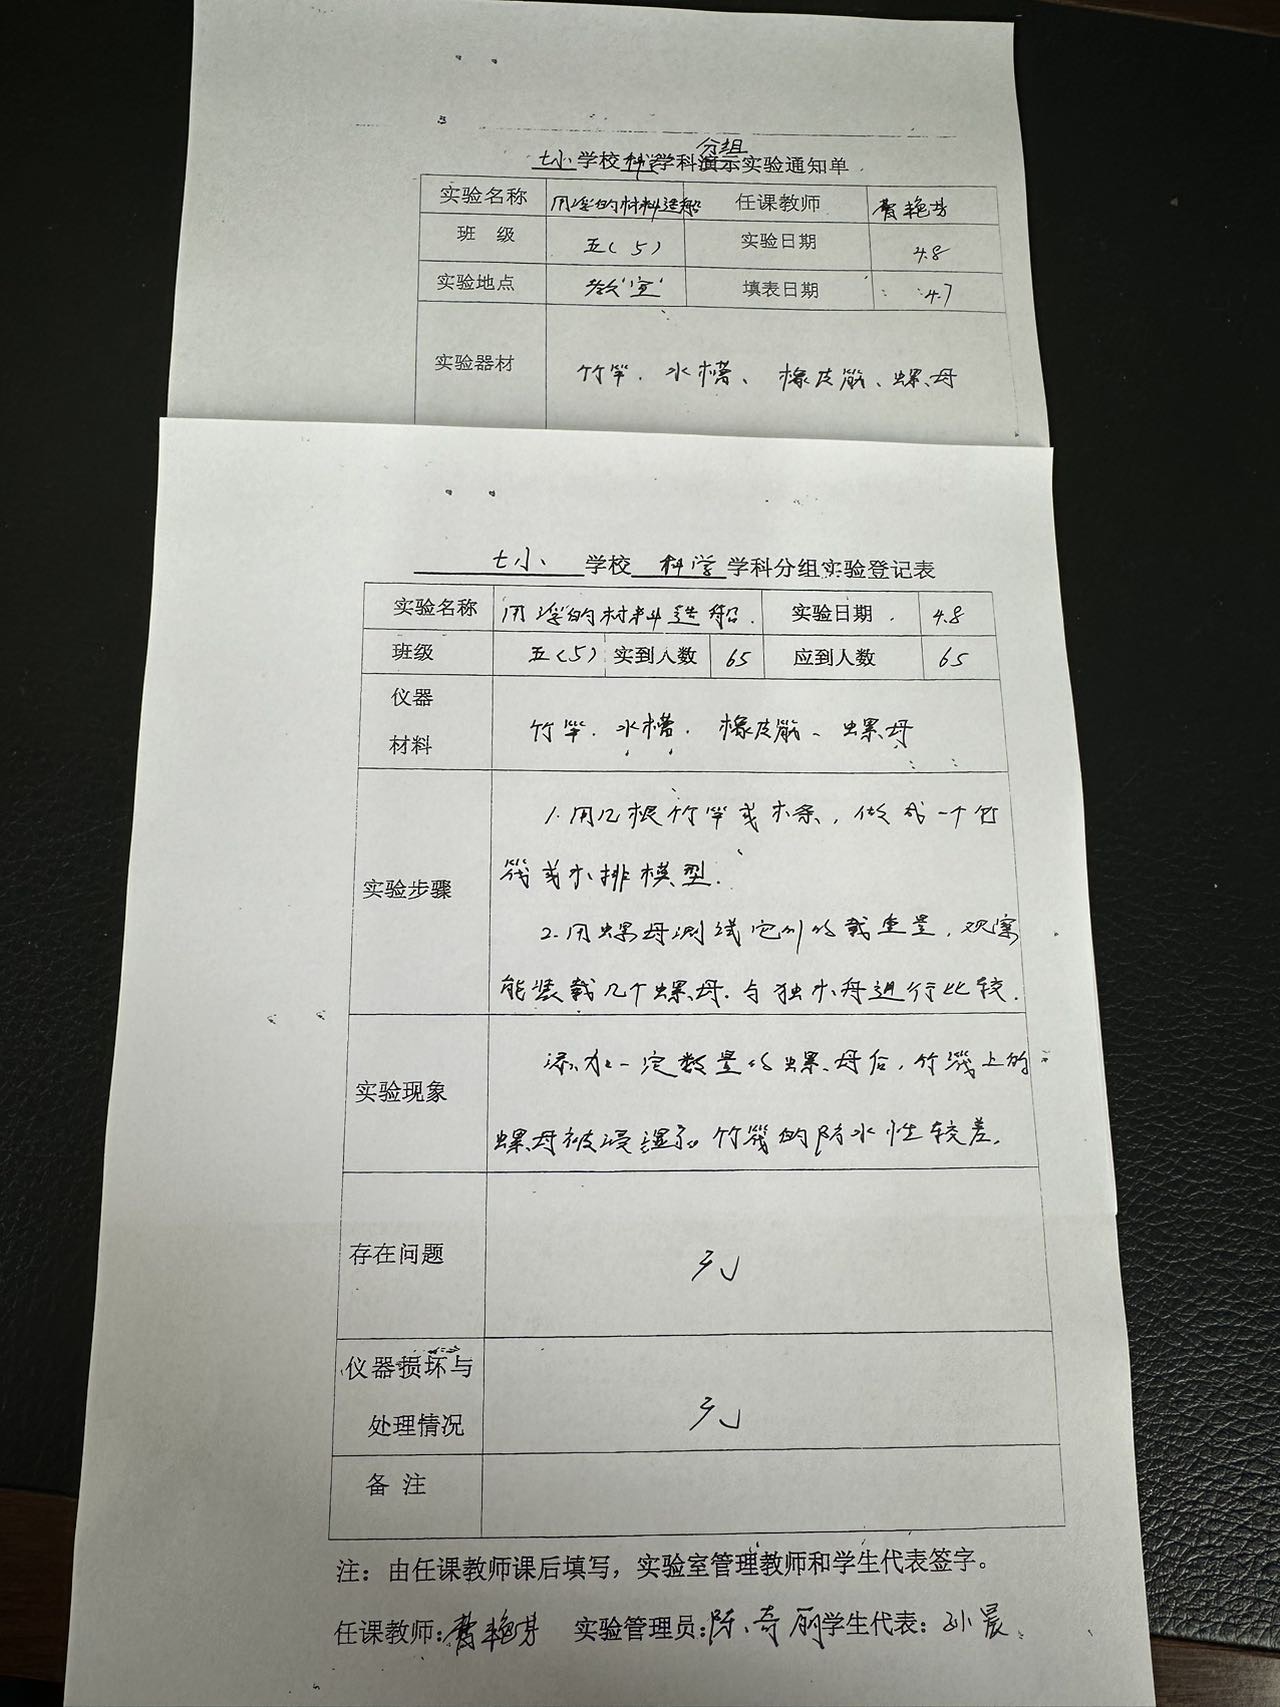 分组
七小学校科学学科演示实验通知单
实验名称 用浮的材料造船 任课教师 艳芳
班 级 五(5) 实验日期 4.8
实验地点 教室 填表日期 4.7
实验器材 竹竿、水槽、橡皮筋、螺母
七小 学校 科学 学科分组实验登记表
实验名称 用浮的材料造船 实验日期 4.8
班级 五(5) 实到人数 65 应到人数 65
仪器
材料 竹竿、水槽、橡皮筋、螺母
1.用几根竹竿或木条，做成一个竹
实验步骤 筏或木排模型.
2.用螺母测试它们的载重量，观察
能装载几个螺母.与独木舟进行比较.
添加一定数量的螺母后，竹筏上的
实验现象
螺母被浸湿了。竹筏的防水性较差.
存在问题 无
仪器损坏与
处理情况 无
备 注
注：由任课教师课后填写，实验室管理教师和学生代表签字。
任课教师: 艳芳 实验管理员: 陈奇丽 学生代表: 孙晨